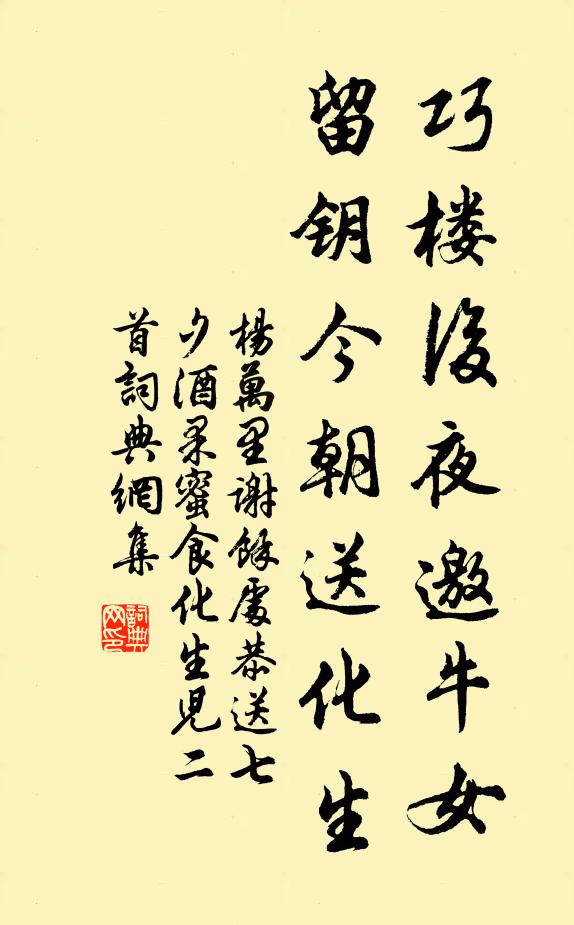 巧楼後夜邀牛女
留钥今朝送化生
楊萬里謝餘處恭送七
夕酒果蜜食化生兒二
首詞典網集
詞典
网印